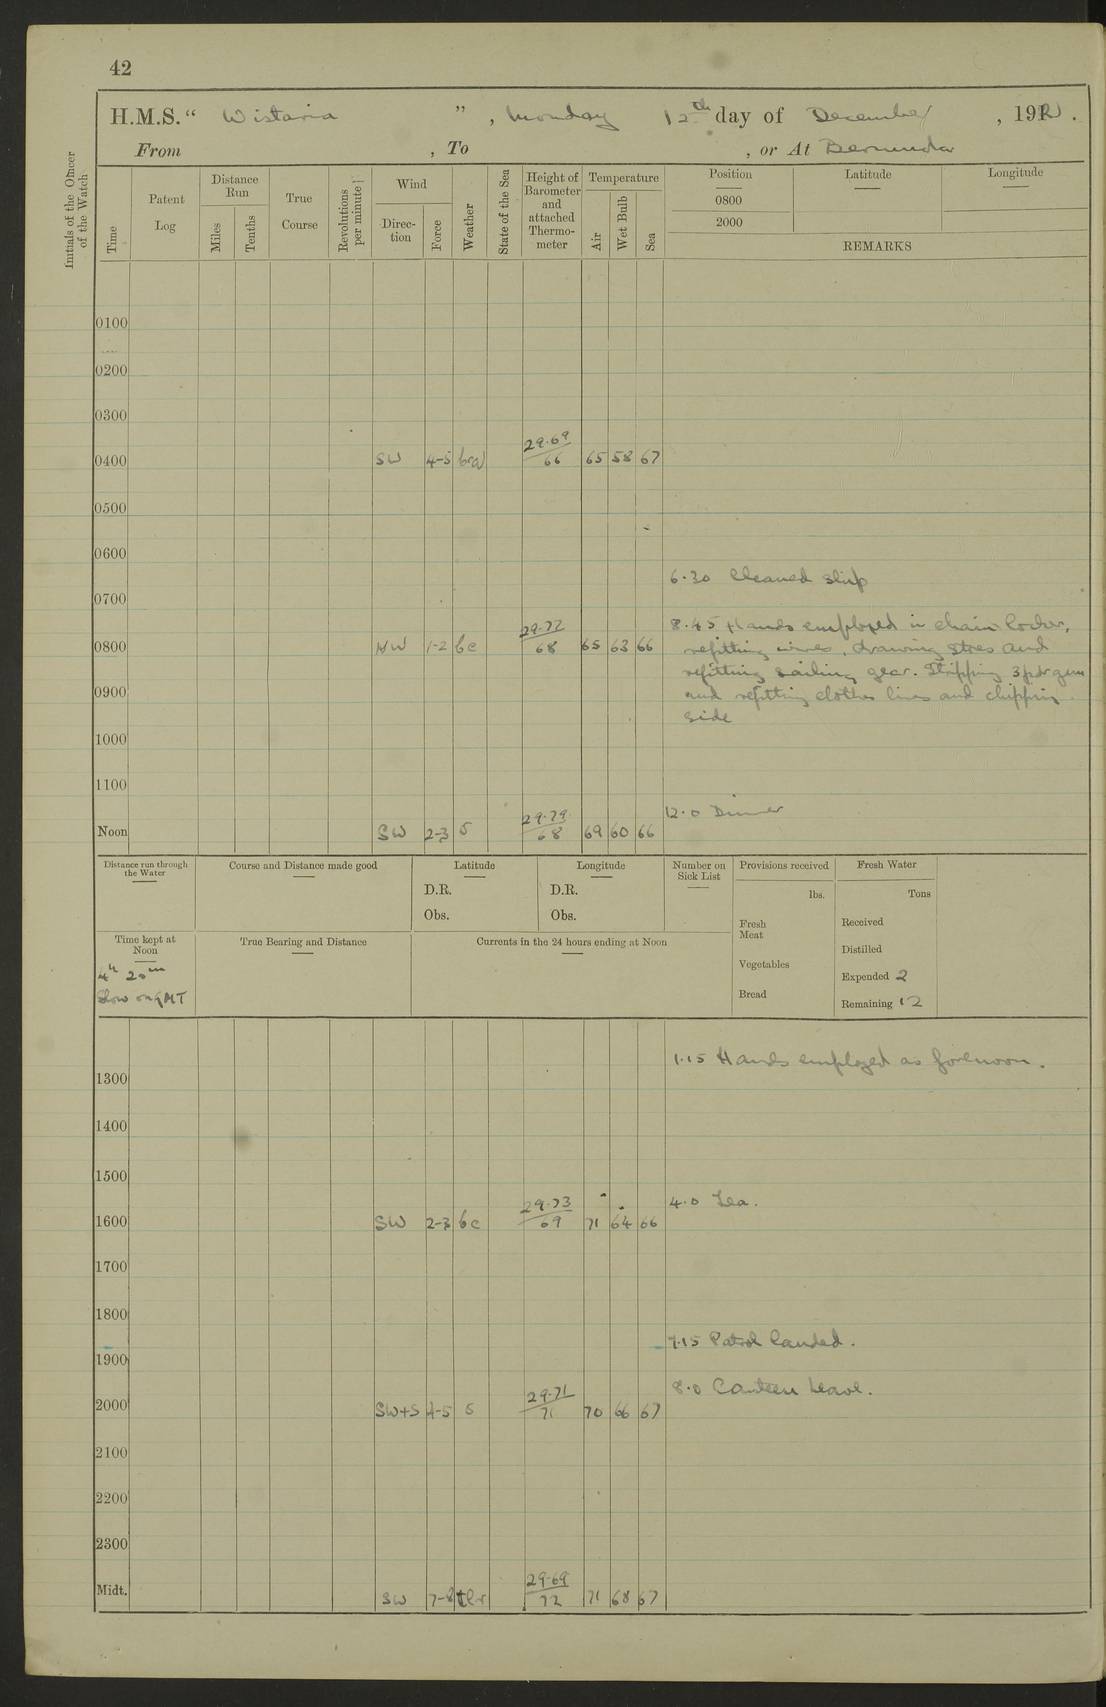 42
H.M.S. " Wistaria ", Monday 12th day of December, 19
From , To , or At Bermuda
Initials of the Officer of the Watch
Time
Patent Log
Distance Run
Miles
Tenths
True Course
Revolutions per minute
Wind
Direction
Force
Weather
State of the Sea
Height of Barometer and attached Thermometer
Temperature
Air
Wet Bulb
Sea
Position
0800
2000
Latitude
Longitude
REMARKS
0100
0200
0300
29.69
0400 SW 4-5 66 65 58 67
0500
0600
6.30 Cleaned ship
0700
8.45 Hands employed in chain locker,
29.72
0800 NW 1-2 bc 68 65 63 66 refitting wires, drawing stores and
refitting sailing gear. Stripping 3 pdr gun
0900 and refitting clothes lines and chipping
side
1000
1100
12.0 Dinner
29.79
Noon SW 2-3 68 69 60 66
Distance run through the Water
Course and Distance made good
Latitude
D.R.
Obs.
Longitude
D.R.
Obs.
Number on Sick List
Provisions received
lbs.
Fresh Meat
Vegetables
Bread
Fresh Water
Tons
Received
Distilled
Expended 2
Remaining 12
Time kept at Noon
4h 20m
Slow on GMT
True Bearing and Distance
Currents in the 24 hours ending at Noon
1.15 Hands employed as forenoon.
1300
1400
1500
29.73 4.0 Tea.
1600 SW 2-3 bc 69 71 64 66
1700
1800
7.15 Patrol landed.
1900
8.0 Canteen Leave.
29.71
2000 SW+S 4-5 71 70 66 67
2100
2200
2300
29.69
Midt. SW 7-8 tlr 72 71 68 67